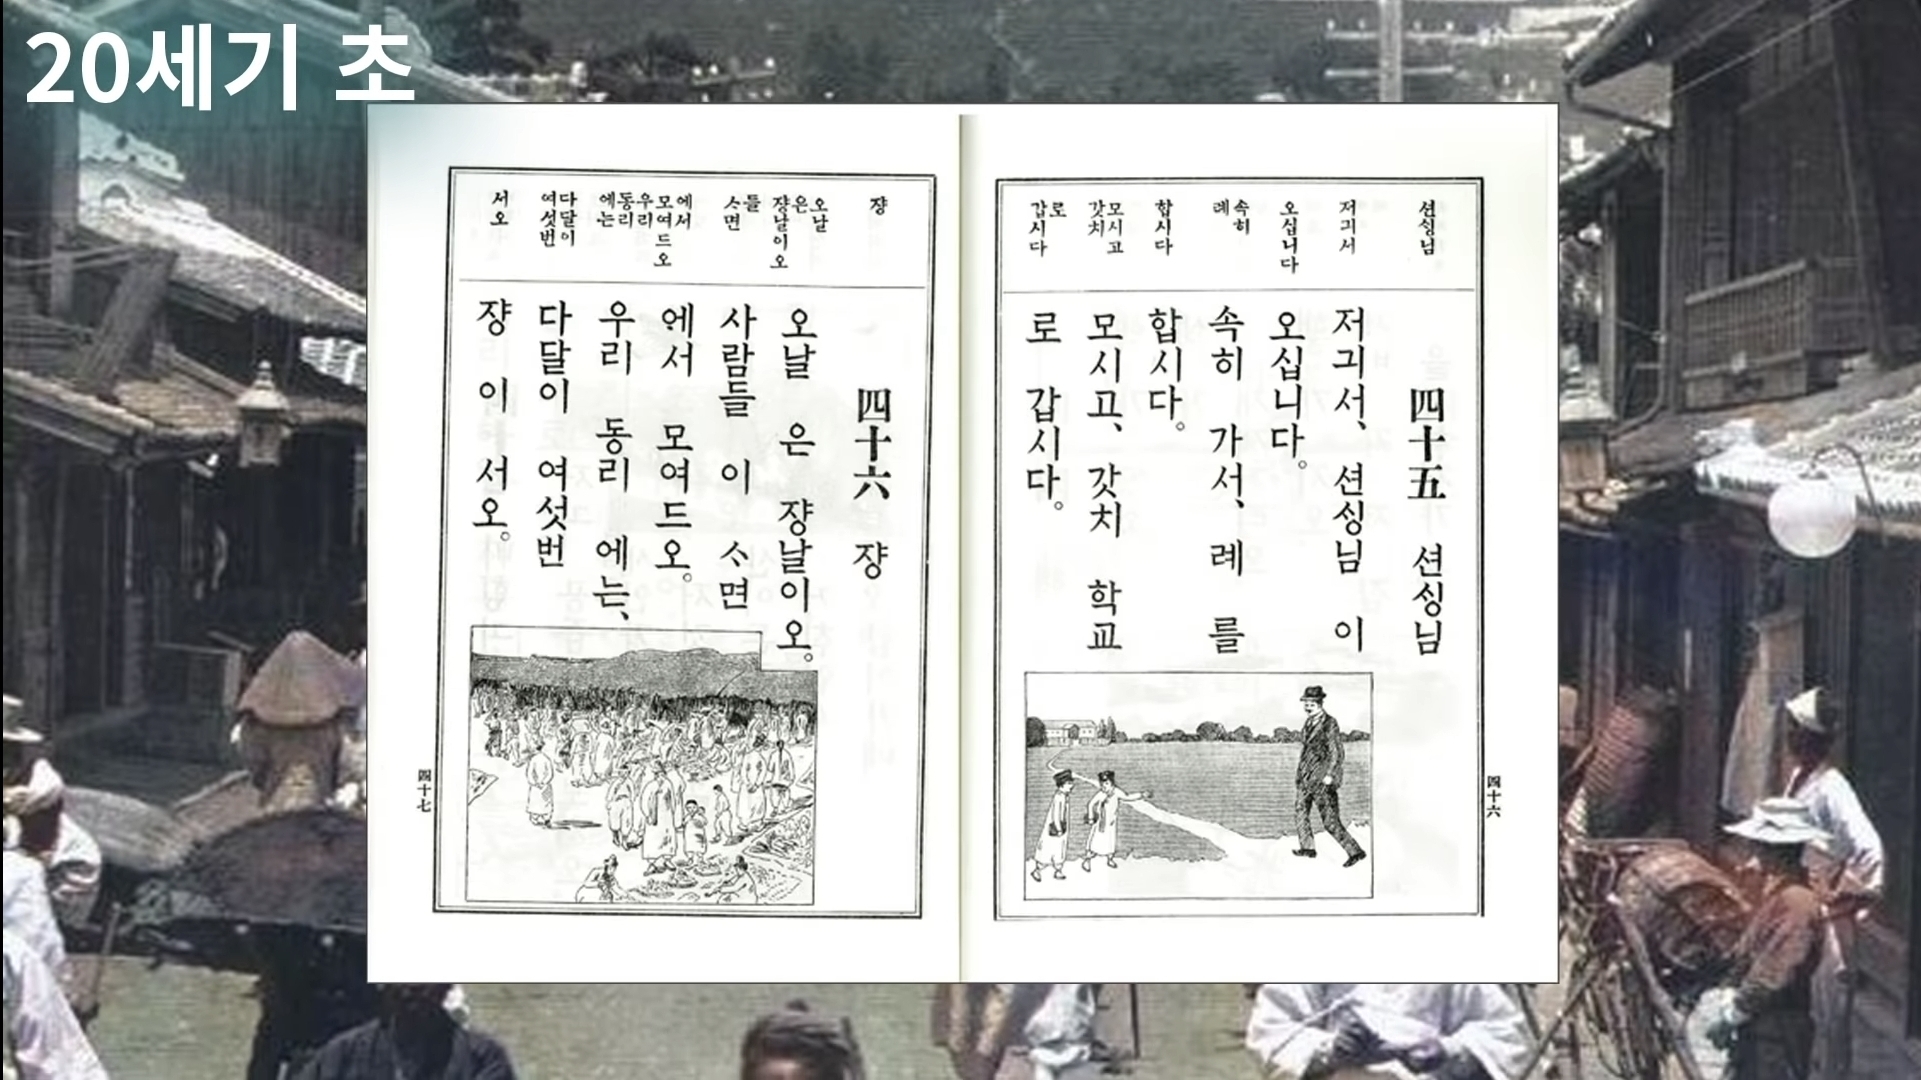 20세기 초
션ᄉᆡᆼ님
저긔서
오십니다
속히
례
합시다
모시고
갓치
로
갑시다
四十五 션ᄉᆡᆼ님
저긔서、 션ᄉᆡᆼ님 이
오십니다。
속히 가서、 례 를
합시다。
모시고、 갓치 학교
로 갑시다。
四十六
쟝
오날
은
쟝날이오
들
ᄉᆞ면
에서
모여드오
우리
동리
에는
다달이
여섯번
서오
四十六 쟝
오날 은 쟝날이오。
사람들 이 ᄉᆞ면
에서 모여드오。
우리 동리 에는、
다달이 여섯번
쟝 이 서오。
四十七